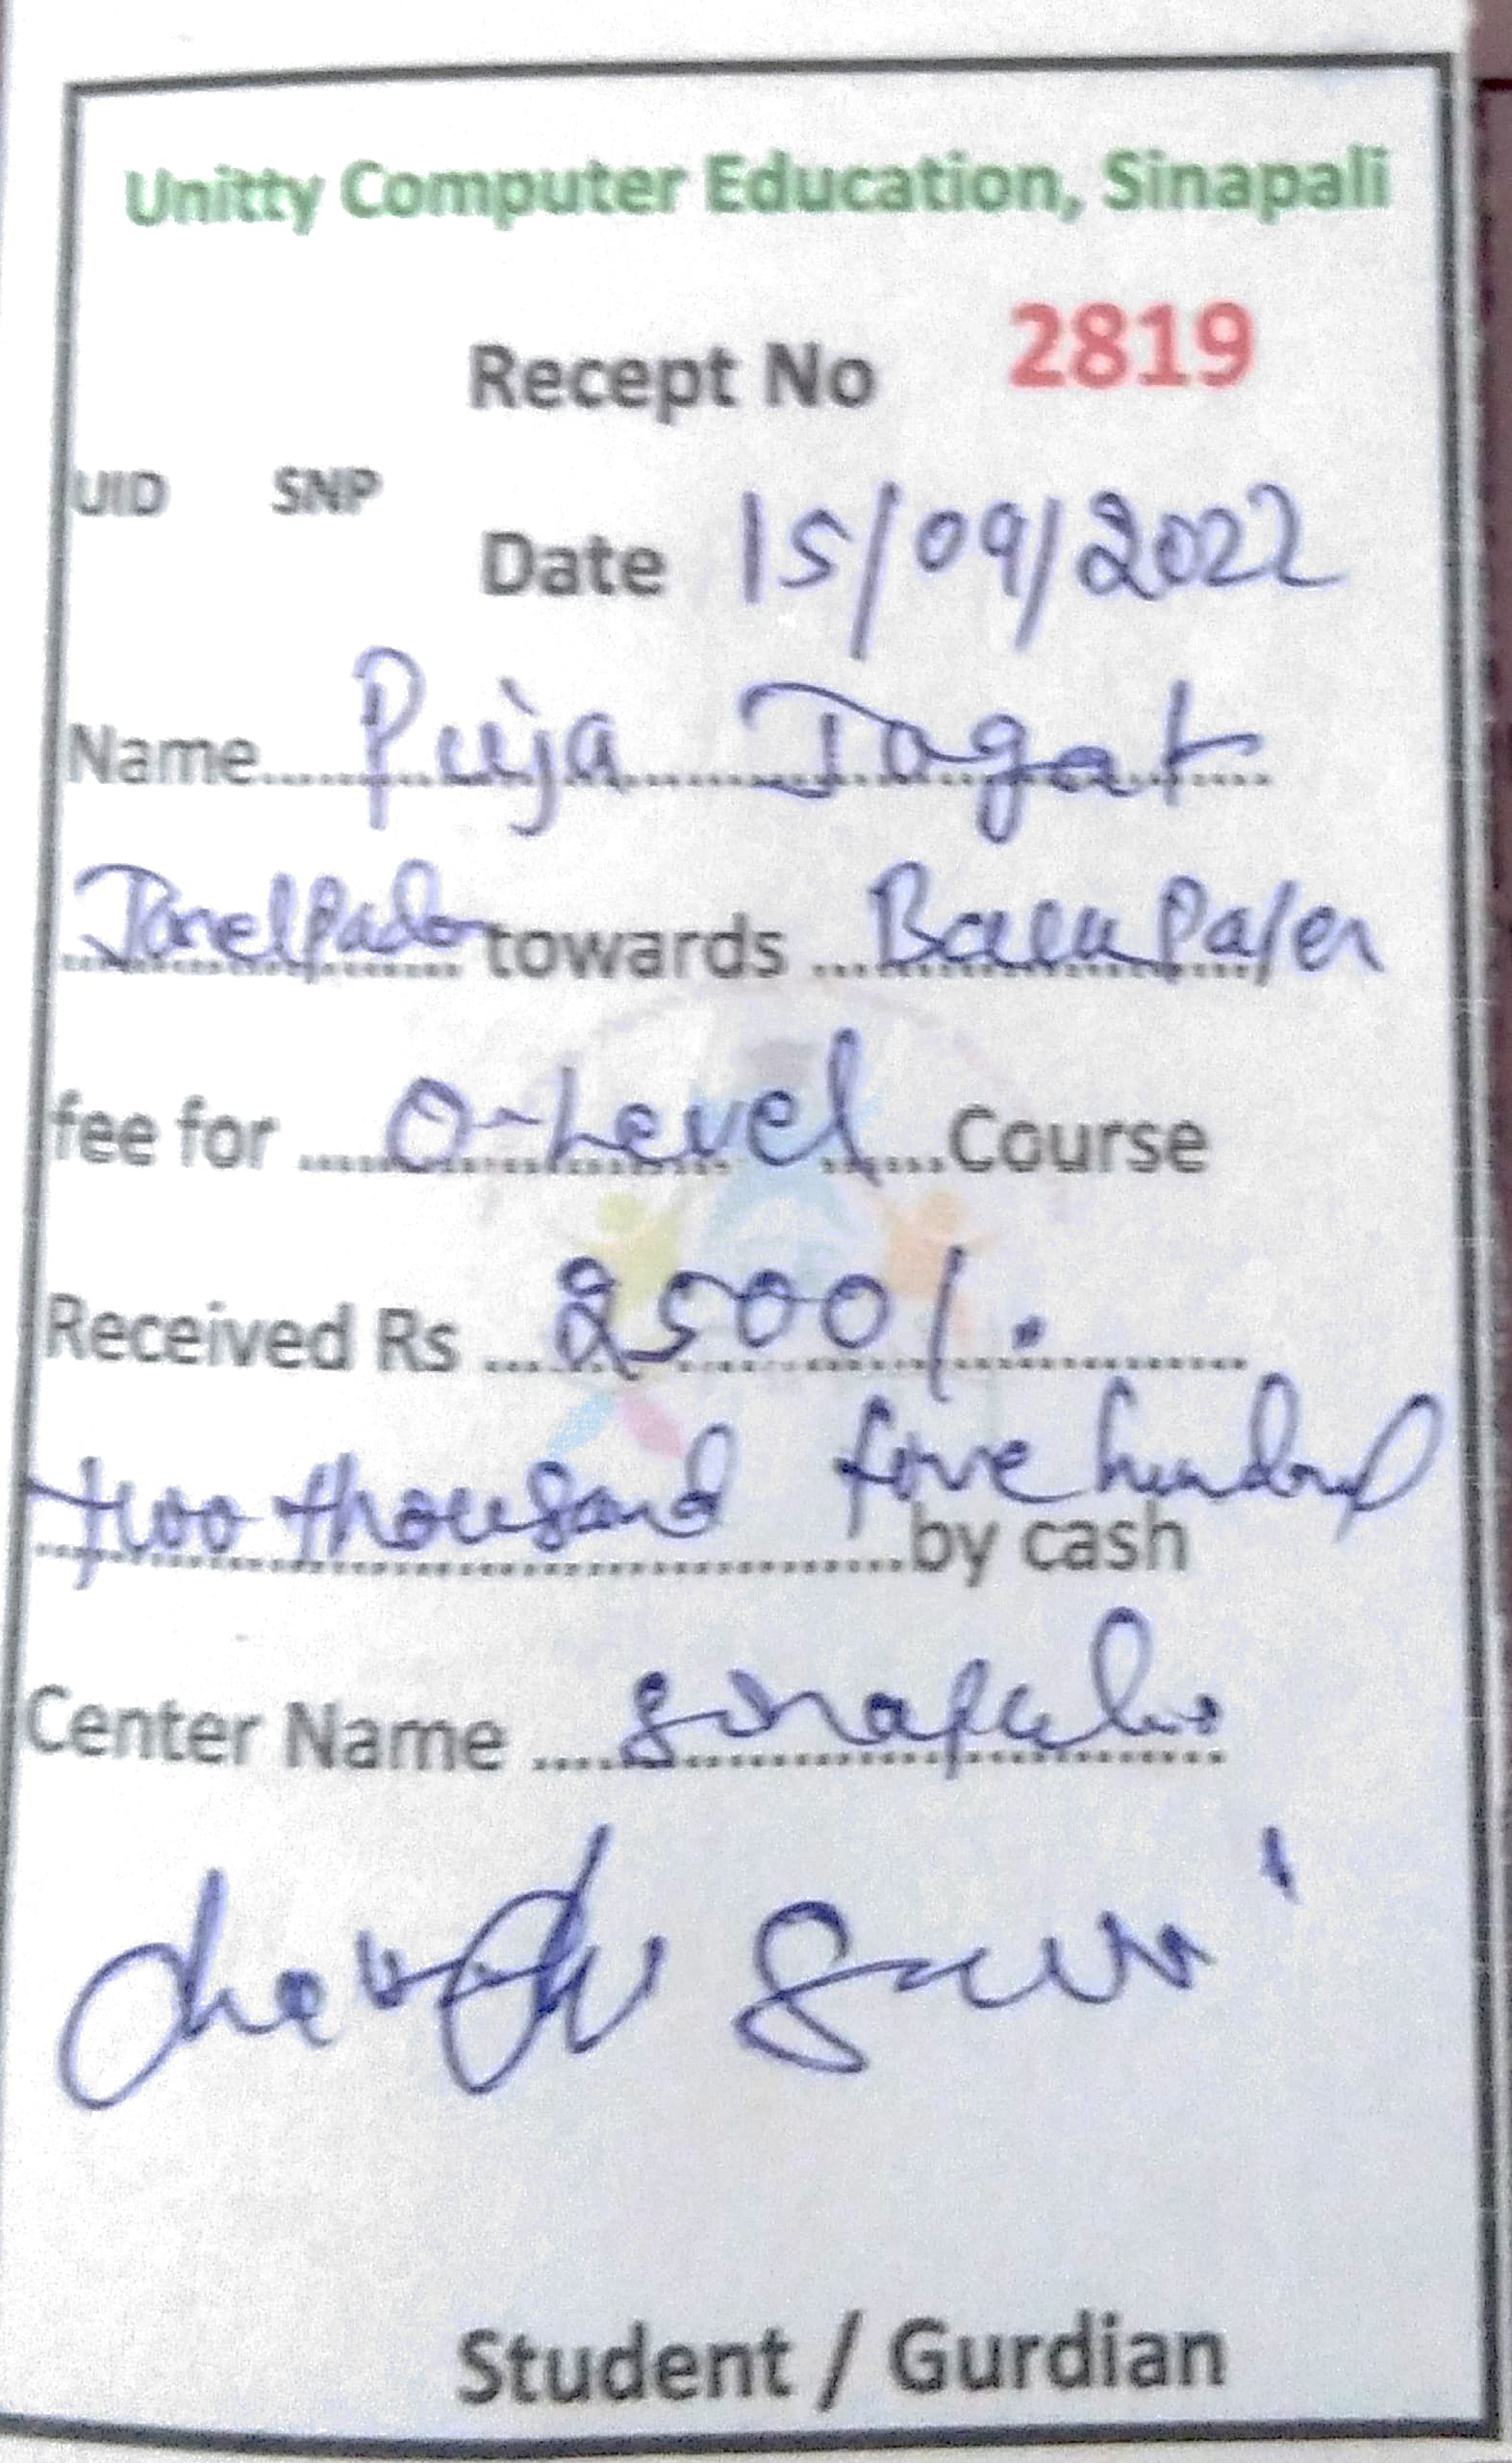 Unitty Computer Education, Sinapali
Recept No 2819
UID SNP
Date 15/09/2022
Name Puja Jagat
towards
fee for O-Level Course
Received Rs 2500/.
two thousand five hundred
by cash
Center Name Sinapali
Student / Gurdian